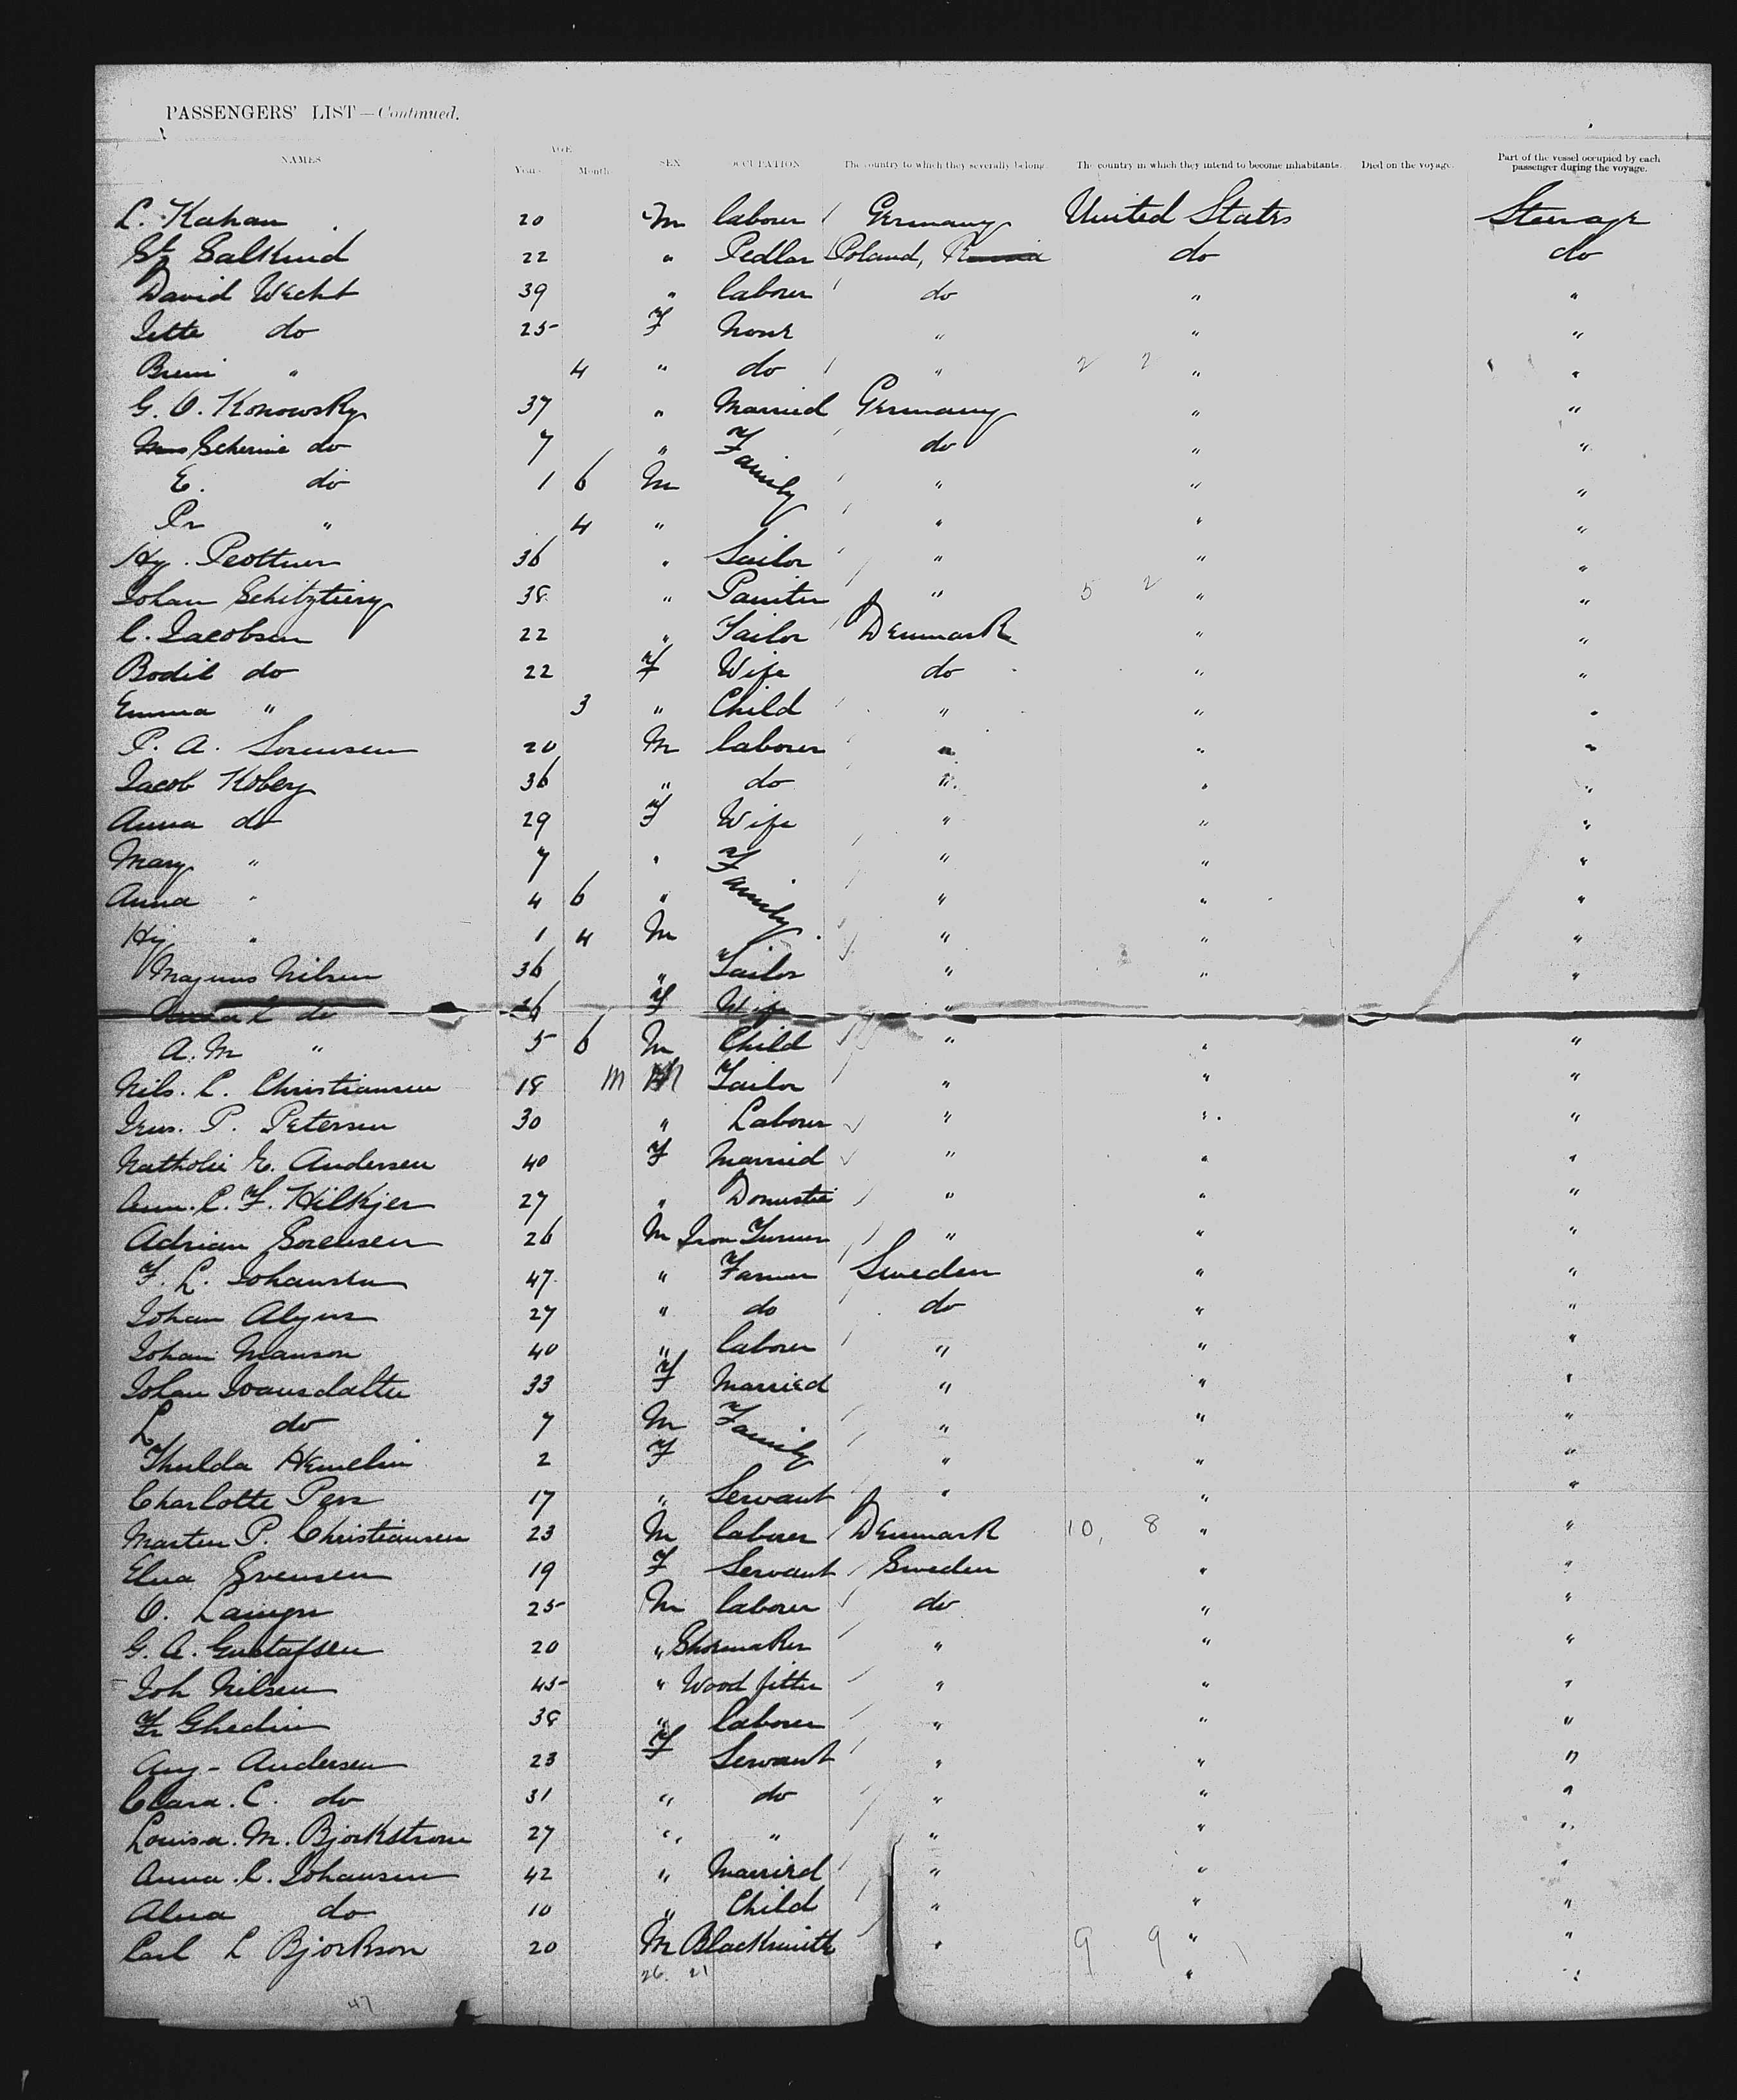 PASSENGERS' LIST—Continued.
NAMES AGE Years Month SEX OCCUPATION The country to which they severally belong. The country in which they intend to become inhabitants. Died on the voyage. Part of the vessel occupied by each passenger during the voyage.
L. Kahan 20 M laborer Germany United States Steerage
St Salkind 22 " Pedlar Poland, Russia do do
David Wecht 39 " laborer do " "
Jette do 25 F None " " "
Breni " 4 " do " 2 2 " "
G. O. Konowsky 37 " Married Germany " "
Scherine do 7 " Family do " "
E. do 1 6 M " " "
Pr " 4 " " " "
Hy. Peottner 36 " Sailor " " "
Johan Schitztierg 38 " Painter " 5 2 " "
C. Jacobsen 22 " Tailor Denmark " "
Bodil do 22 F Wife do " "
Emma " 3 " Child " " "
P. A. Sorensen 20 M laborer " " "
Jacob Koberg 36 " do " " "
Anna do 29 F Wife " " "
Mary " 7 " Family " " "
Anna " 4 6 " " " "
Hy " 1 4 M " " "
Magnus Nilsen 36 " Tailor " " "
do 26 F Wife "
A. M " 5 6 M Child " " "
Nils. C. Christiansen 18 M M Tailor " " "
Jens. P. Petersen 30 " Laborer " " "
Natholie E. Andersen 40 F Married " " "
Ann. C. F. Hilkjer 27 " Domestic " " "
Adrian Sorensen 26 M Iron Turner " " "
F. L. Johansen 47 " Farmer Sweden " "
Johan Algus 27 " do do " "
Johan Manson 40 " laborer " " "
Johan Ivansdalter 33 F Married " " "
L do 7 M Family " " "
Thulda Hemelin 2 F " " "
Charlotte Pers 17 " Servant " " "
Marten P. Christiansen 23 M laborer Denmark 10, 8 " "
Elna Svensen 19 F Servant Sweden " "
O. 25 M laborer do " "
G. A. Gustafsen 20 " Shoemaker " " "
Joh Nilsen 45 " Wood fitter " " "
Fr Ghedin 38 " laborer " " "
Aug - Andersen 23 F Servant " " "
Clara. C. do 31 " do " " "
Louisa. M. Bjorkstrom 27 " " " " "
Anna. C. Johansen 42 " Married " " "
Alna do 10 " Child " " "
Carl L Bjorkson 20 M Blacksmith " 9 9 " "
26 21 " "
47